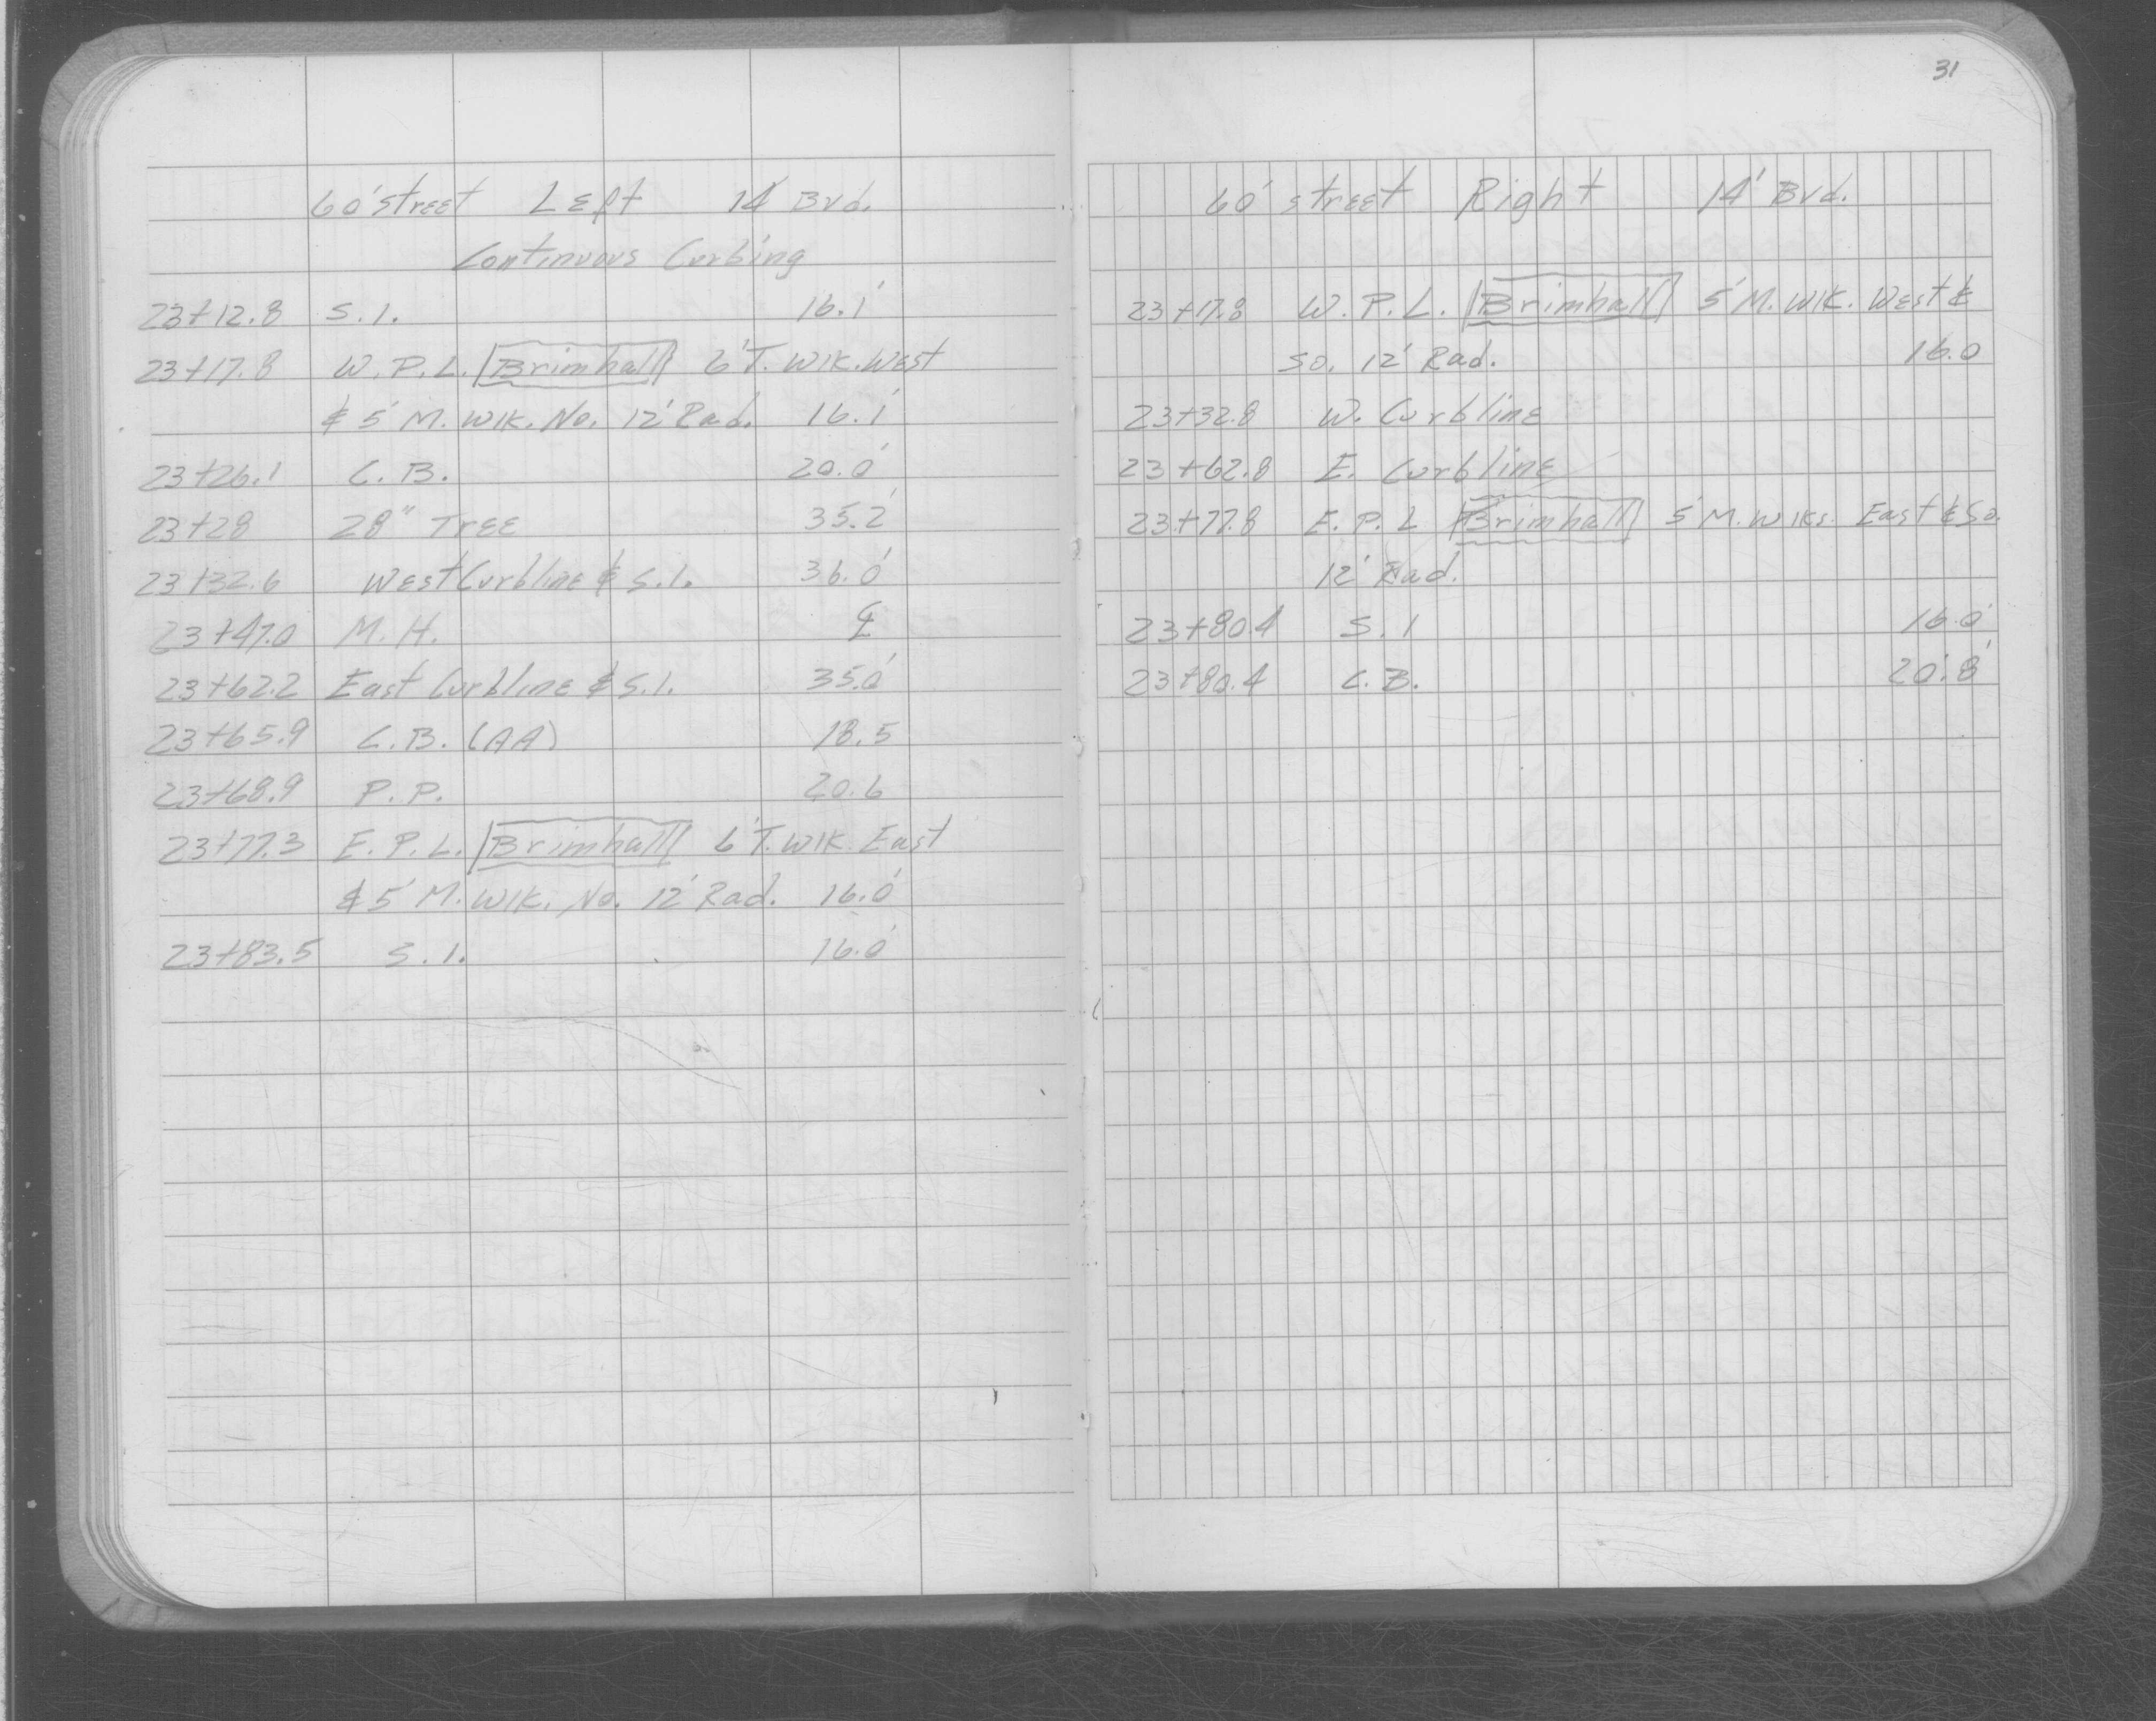 60' street Left 14' Bvd.
Continuous Curbing
23+12.8 S.I. 16.1'
23+17.8 W.P.L. Brimhall 6' T. Wlk. West
& 5' M. Wlk. No. 12' Rad. 16.1'
23+26.1 C.B. 20.0'
23+28 28" Tree 35.2'
23+32.6 West Curbline & S.I. 36.0'
23+47.0 M.H. ℄
23+62.2 East Curbline & S.I. 35.0'
23+65.9 C.B. (AA) 18.5
23+68.9 P.P. 20.6
23+77.3 E.P.L. Brimhall 6' T. Wlk. East
& 5' M. Wlk. No. 12' Rad. 16.0'
23+83.5 S.I. 16.0'
31
60' street Right 14' Bvd.
23+17.8 W.P.L. Brimhall 5' M. Wlk. West &
So. 12' Rad. 16.0
23+32.8 W. Curbline
23+62.8 E. Curbline
23+77.8 E.P.L Brimhall 5' M. Wlks. East & So.
12' Rad.
23+80.4 S.I 16.0'
23+80.4 C.B. 20.8'